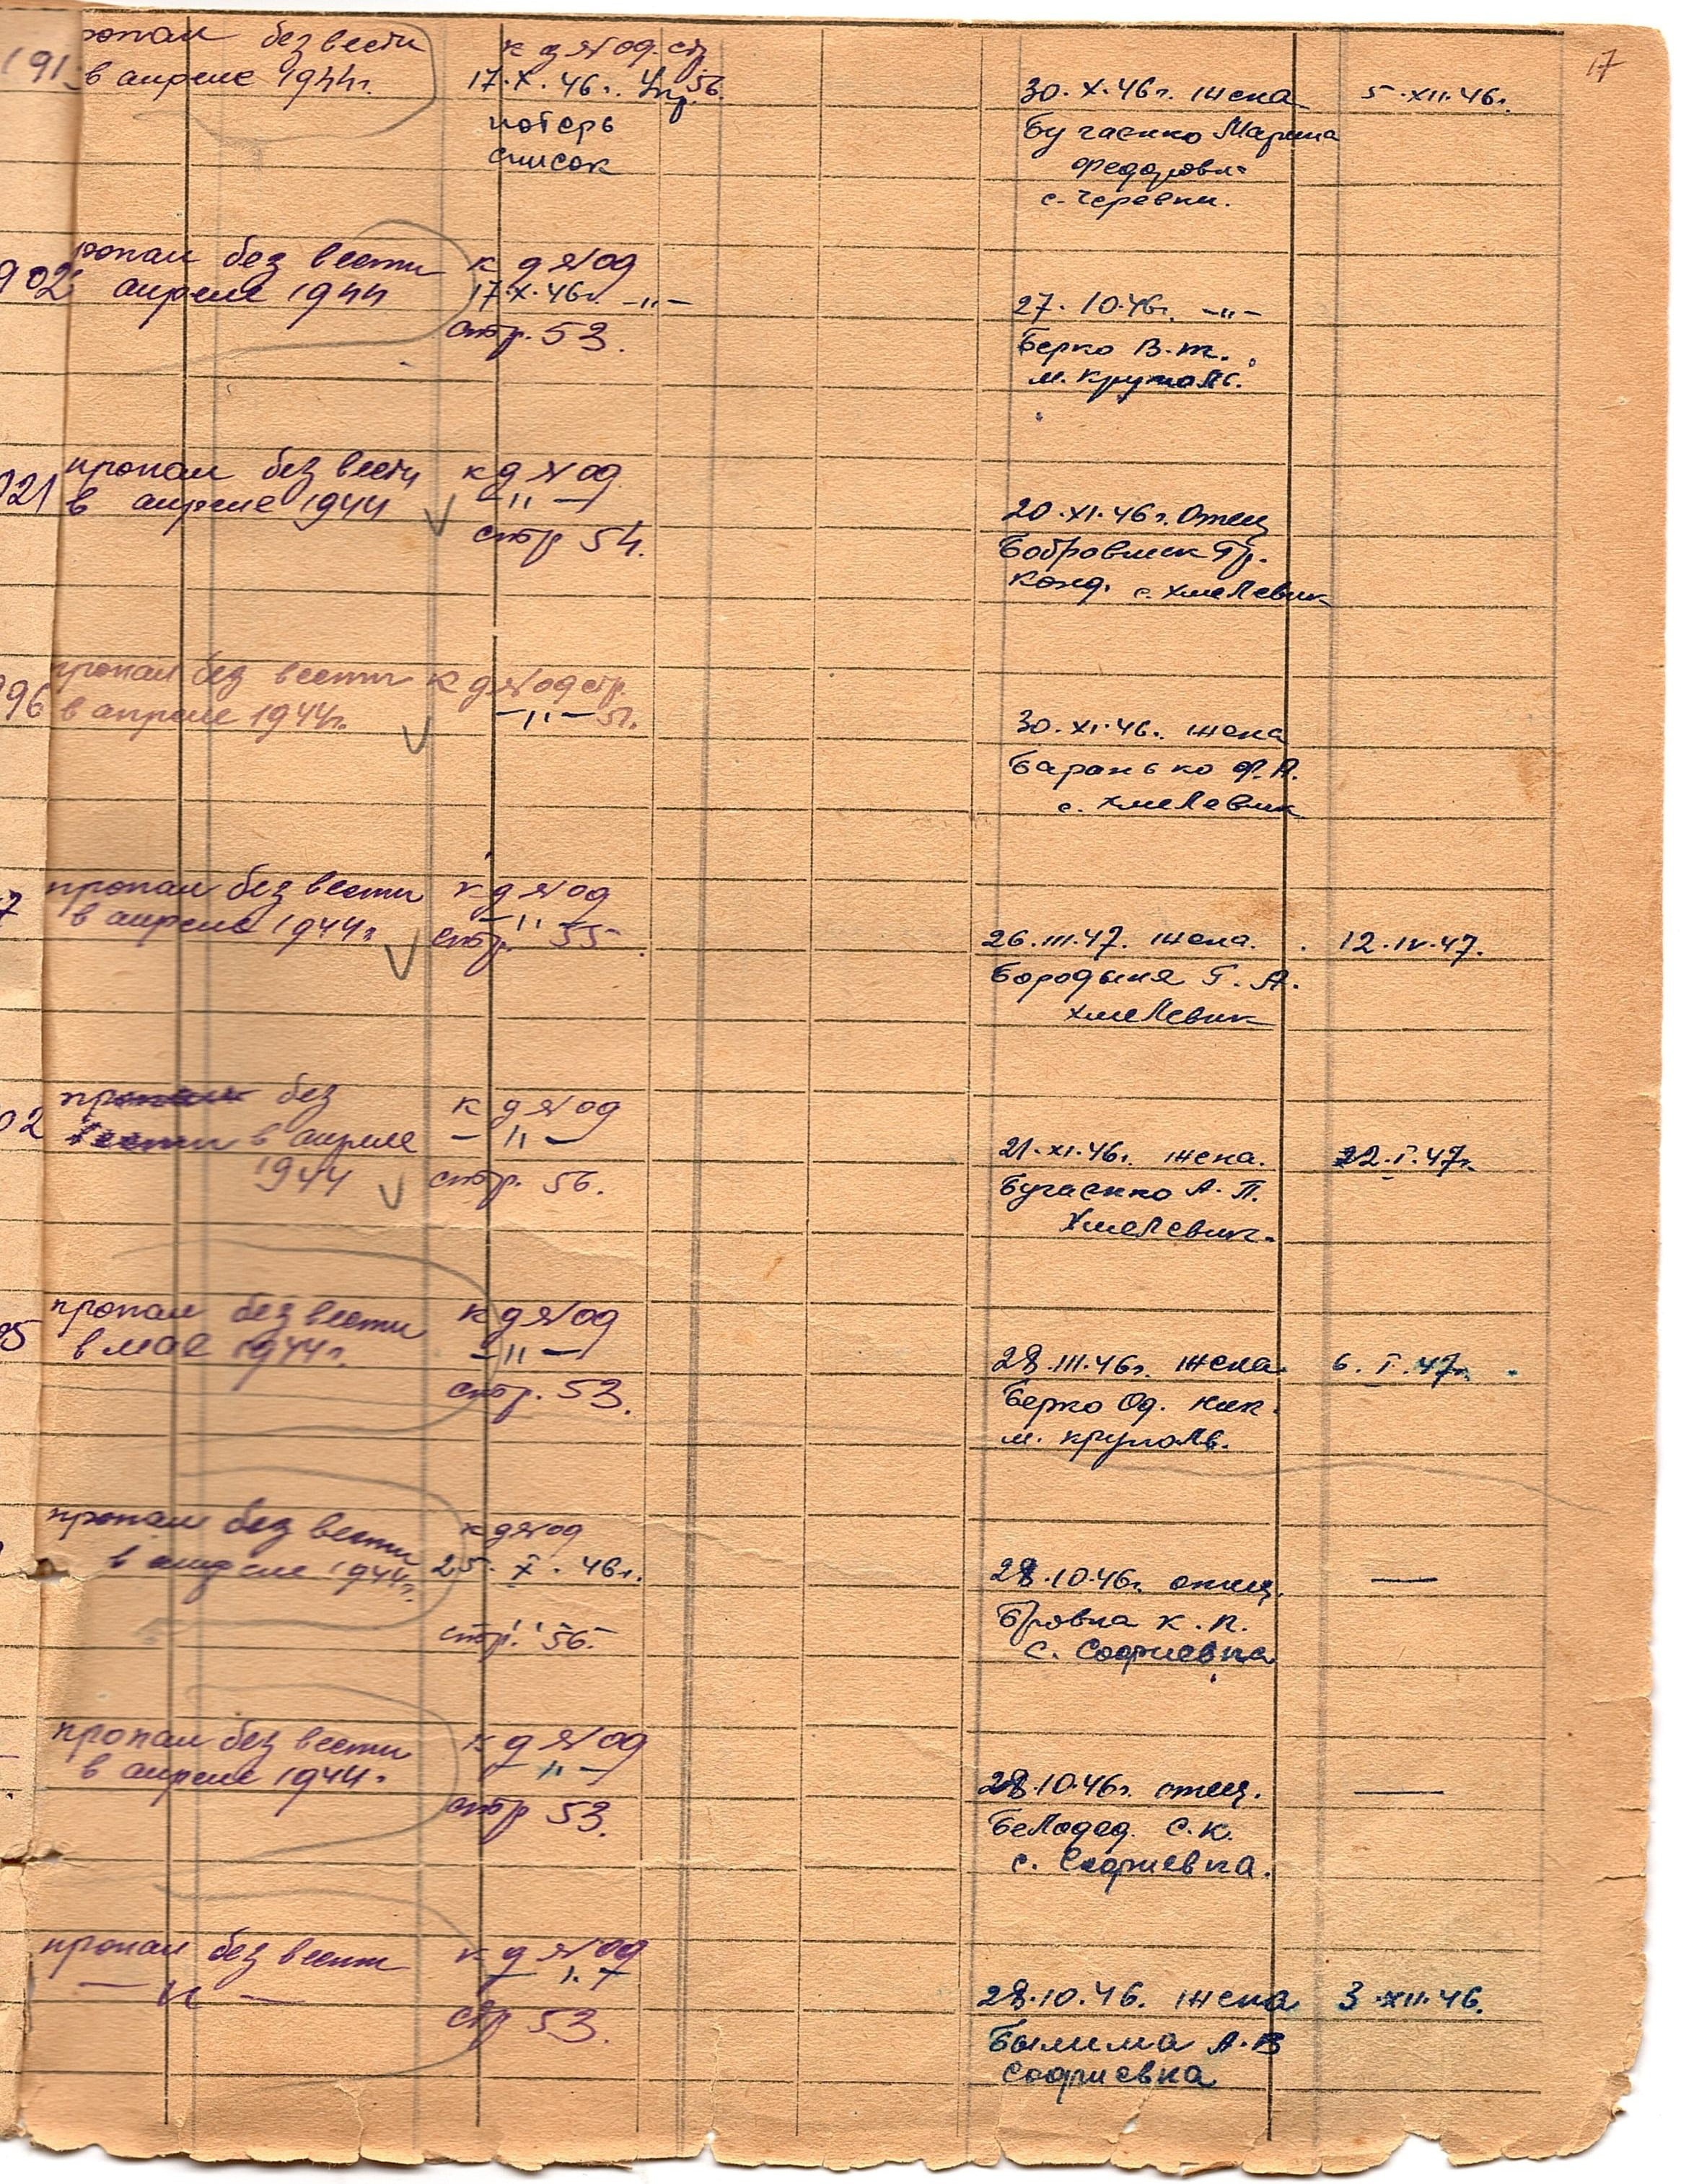 17
191
пропал без вести
в апреле 1944г.
17.X.46г. Упр.
потерь
список
56.
30.X.46г. жена
Бугаенко Марина
Федоровн
с. Черевки.
5.XII.46г.
902
пропал без вести
апреле 1944
17.X.46г. —"—
стр. 53.
27.10.46г. —"—
Берко В.Т.
м. Круполь.
921
пропал без вести
в апреле 1944
—"—
стр 54.
20.XI.46г. Отец
Бобровник Гр.
Конд. с. Хмелевик
96
пропал без вести
в апреле 1944г.
—"— 51.
30.XI.46г. жена
Баранько Ф.А.
с. Хмелевик
7
пропал без вести
в апреле 1944г.
—"—
стр. 55
26.III.47. жена.
Бородыня Г.А.
Хмелевик
12.IV.47.
02
пропал без
вести в апреле
1944
—"—
стр. 56.
21.XI.46г. жена.
Бугаенко А.П.
Хмелевик.
22.I.47г.
05
пропал без вести
в мае 1944г.
—"—
стр. 53.
28.III.46г. жена
Берко Од. Ник.
м. Круполь.
6.I.47г.
пропал без вести
в апреле 1944г.
25.X.46г.
стр. 56.
28.10.46г. отец.
Бровка К.П.
с. Софиевка
—
пропал без вести
в апреле 1944г.
—"—
стр 53.
28.10.46г. отец.
Белодед С.К.
с. Софиевка.
—
пропал без вести
—"—
—"—
стр 53.
28.10.46. жена
Былима А.В
Софиевка
3.XII.46.